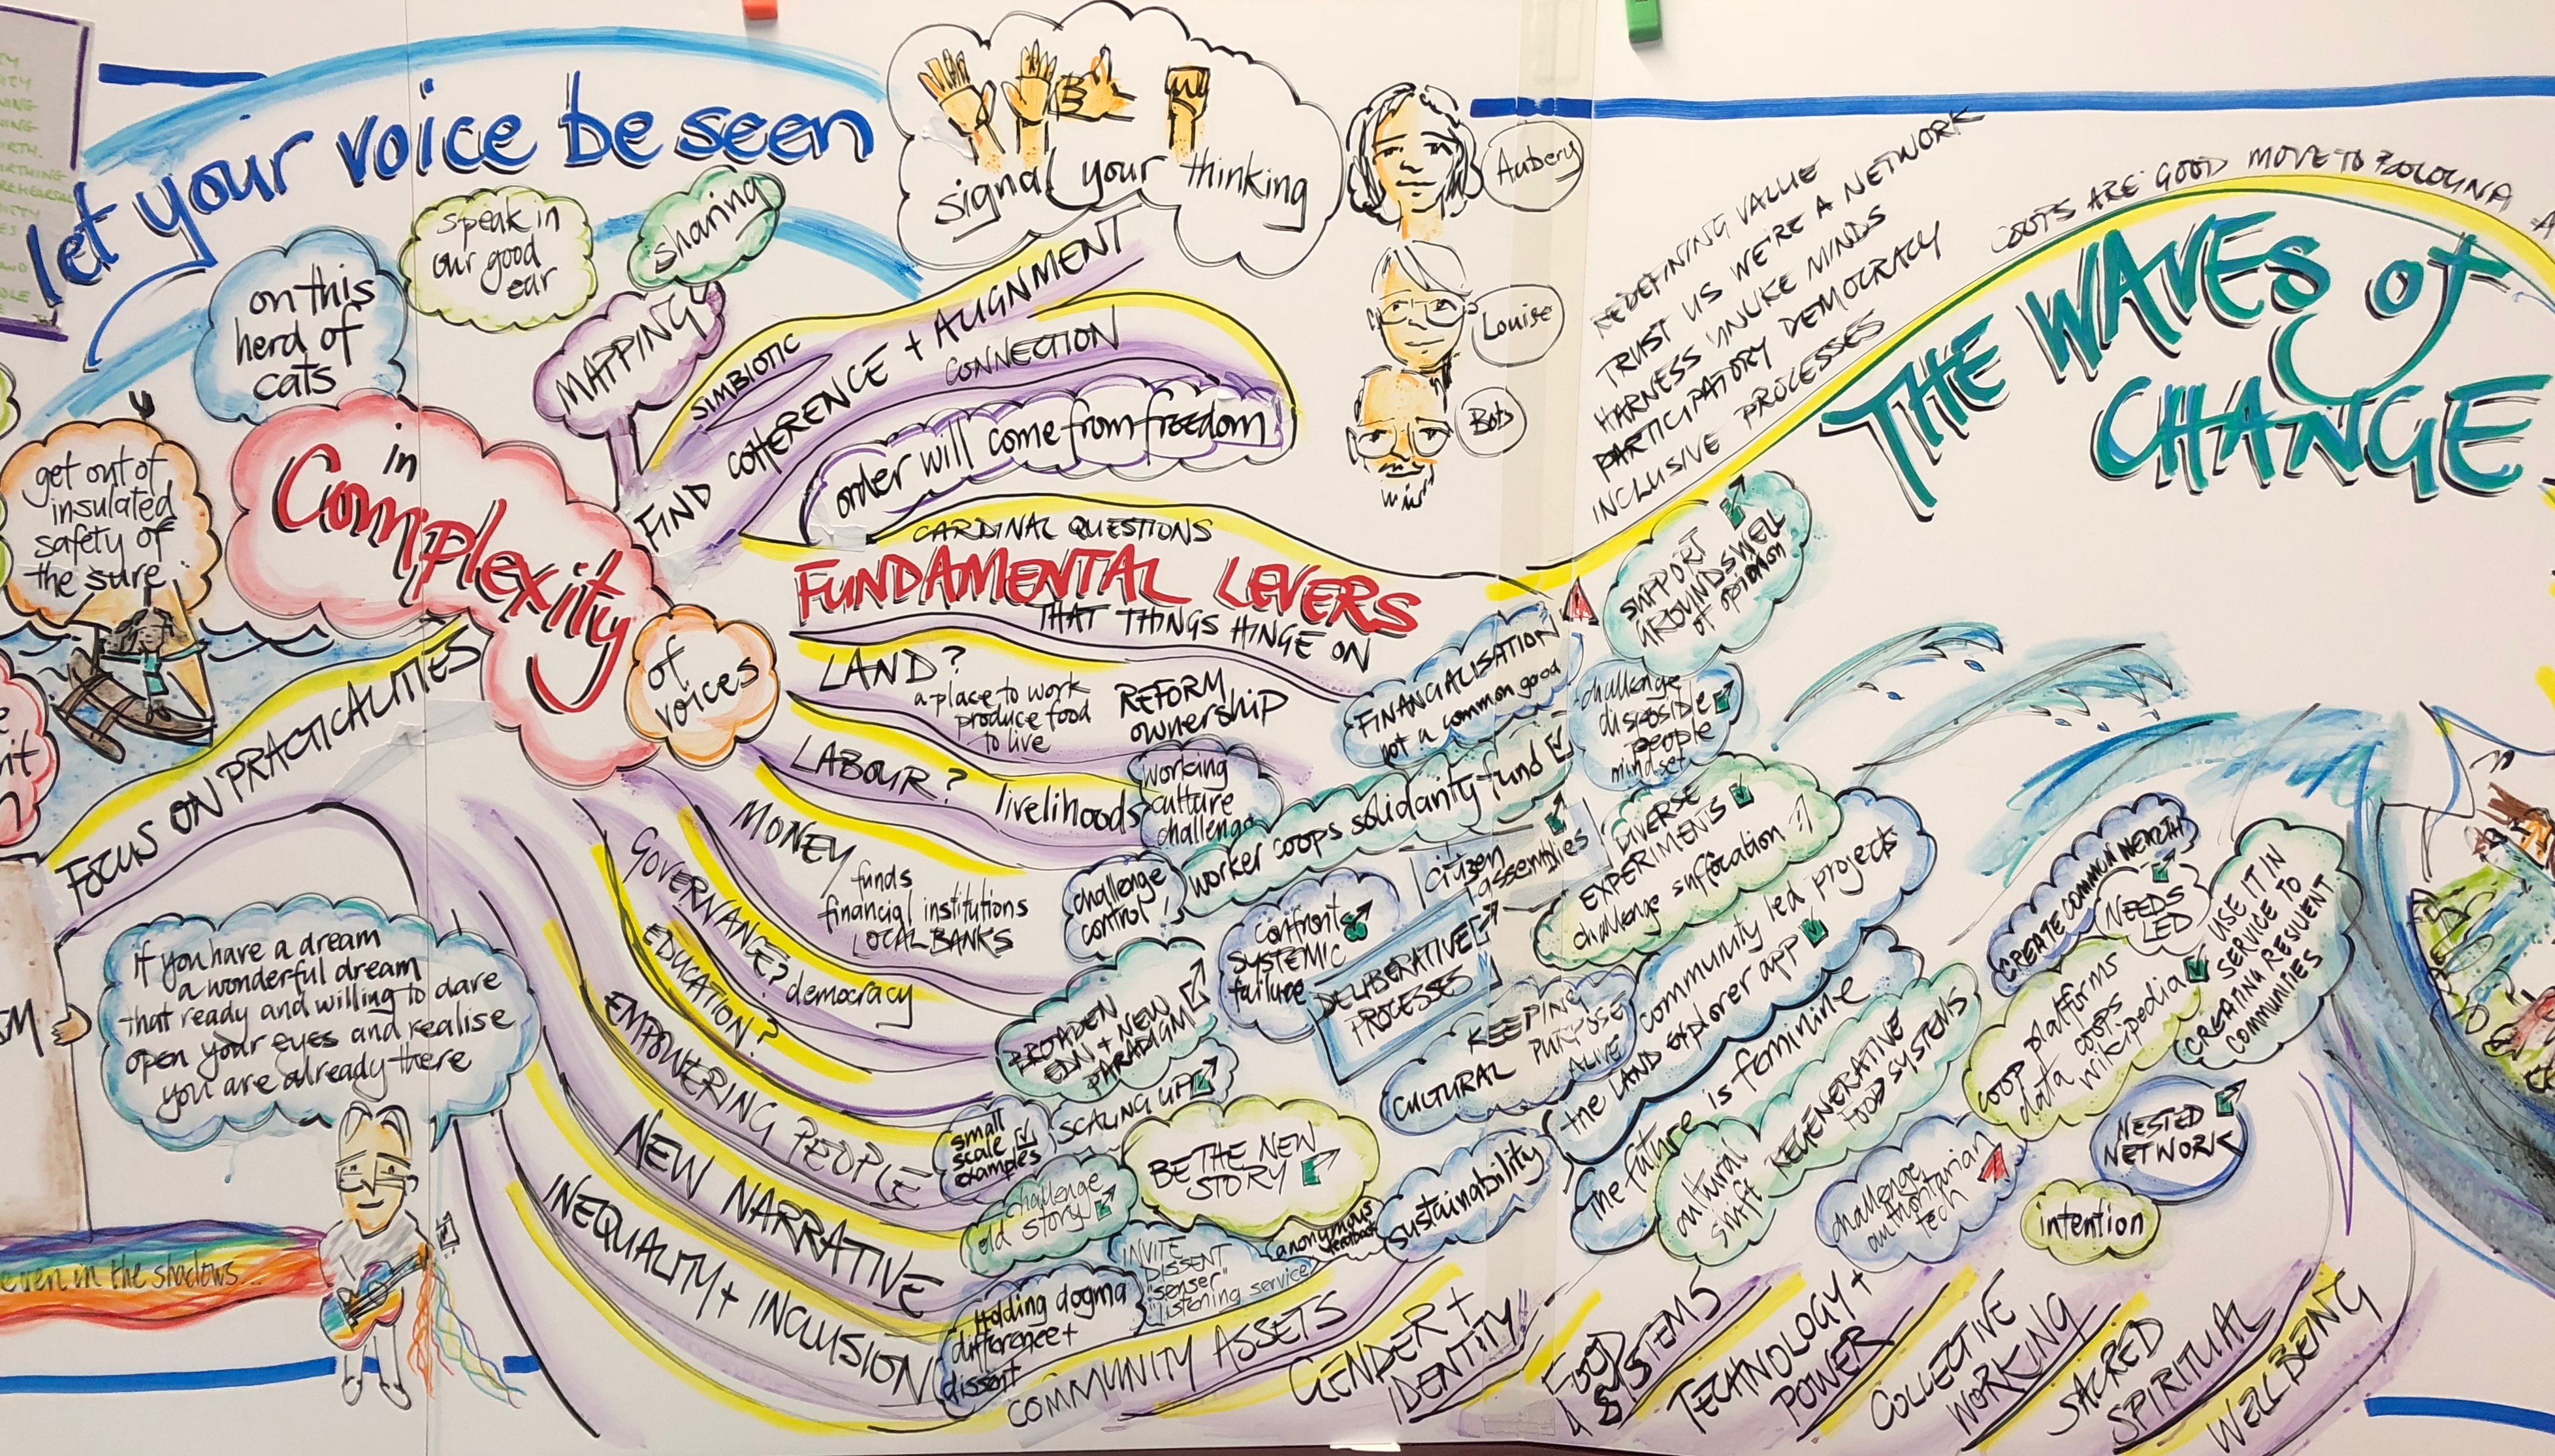 let your voice be seen
signal your thinking
Aubery
Louise
Bots
on this
herd of
cats
speak in
our good
ear
sharing
MAPPING
get out of
insulated
safety of
the sure
in
Complexity
of
voices
SIMBIOTIC
FIND COHERENCE + ALIGNMENT
CONNECTION
order will come from freedom
FOCUS ON PRACTICALITIES
if you have a dream
a wonderful dream
that ready and willing to dare
open your eyes and realise
you are already there
even in the shadows...
CARDINAL QUESTIONS
FUNDAMENTAL LEVERS
THAT THINGS HINGE ON
LAND?
a place to work
produce food
to live
REFORM
ownership
LABOUR?
livelihoods
working
culture
challenge
MONEY
funds
financial institutions
LOCAL BANKS
GOVERNANCE? democracy
EDUCATION?
EMPOWERING PEOPLE
NEW NARRATIVE
INEQUALITY + INCLUSION
FINANCIALISATION
not a common good
worker coops solidarity fund
challenge
control!
confront
SYSTEMIC
failure
citizen
assemblies
DELIBERATIVE
PROCESSES
BROADEN
EDN + NEW
PARADIGM
SCALING UP
small
scale
examples
challenge
old story
BE THE NEW
STORY
INVITE
DISSENT
"senser"
"listening service"
anonymous
feedback
Holding dogma
difference +
dissent
sustainability
KEEPING
PURPOSE
ALIVE
CULTURAL
REDEFINING VALUE
TRUST US WE'RE A NETWORK
HARNESS UNLIKE MINDS
PARTICIPATORY DEMOCRACY
INCLUSIVE PROCESSES
COOPS ARE GOOD MOVE TO BOLOGNA
THE WAVES of
CHANGE
SUPPORT
GROUNDSWELL
of opinion
challenge
disposible
people
mindset
DIVERSE
EXPERIMENTS
challenge suffocation
community led projects
the LAND explorer app
the future is feminine
cultural
shift
REGENERATIVE
FOOD SYSTEMS
challenge
authoritarian
tech
CREATE COMMON WEALTH
NEEDS
LED
USE IT IN
SERVICE TO
CREATING RESILIENT
COMMUNITIES
coop platforms
data coops
wikipedia
NESTED
NETWORK
intention
COMMUNITY ASSETS
GENDER +
IDENTITY
FOOD
SYSTEMS
TECHNOLOGY +
POWER
COLLECTIVE
WORKING
SACRED
SPIRITUAL
WELL BEING